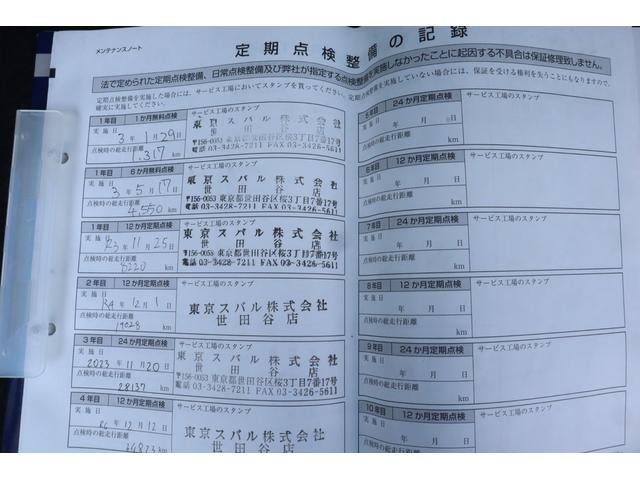 メンテナンスノート
定期点検整備の記録
法で定められた定期点検整備、日常点検整備及び弊社が指定する点検整備を実施しなかったことに起因する不具合は保証修理致しません。
定期点検整備を実施した場合には、サービス工場においてスタンプを買ってください。
確実に実施してください。
定期点検整備を実施していない場合は、保証を受ける権利を失うことにもなりますので、
1年目 1か月無料点検 サービス工場のスタンプ
実施日 3年 1月 29日
点検時の総走行距離
1,317 km
東京スバル株式会社
世田谷店
〒156-0053 東京都世田谷区桜3丁目7番17号
電話 03-3428-7211 FAX 03-3426-5611
1年目 6か月無料点検 サービス工場のスタンプ
実施日 3年 5月 17日
点検時の総走行距離
4,550 km
東京スバル株式会社
世田谷店
〒156-0053 東京都世田谷区桜3丁目7番17号
電話 03-3428-7211 FAX 03-3426-5611
1年目 12か月定期点検 サービス工場のスタンプ
実施日 R3年 11月 25日
点検時の総走行距離
8220 km
東京スバル株式会社
世田谷店
〒156-0053 東京都世田谷区桜3丁目7番17号
電話 03-3428-7211 FAX 03-3426-5611
2年目 12か月定期点検 サービス工場のスタンプ
実施日 R4年 12月 1日
点検時の総走行距離
19028 km
東京スバル株式会社
世田谷店
3年目 24か月定期点検 サービス工場のスタンプ
実施日 2023年 11月 20日
点検時の総走行距離
28137 km
東京スバル株式会社
世田谷店
〒156-0053 東京都世田谷区桜3丁目7番17号
電話 03-3428-7211 FAX 03-3426-5611
4年目 12か月定期点検 サービス工場のスタンプ
実施日 年 12月 12日
点検時の総走行距離
km
東京スバル株式会社
世田谷店
24か月定期点検 サービス工場のスタンプ
実施日 年 月 日
点検時の総走行距離
km
6年目 12か月定期点検 サービス工場のスタンプ
実施日 年 月 日
点検時の総走行距離
km
7年目 24か月定期点検 サービス工場のスタンプ
実施日 年 月 日
点検時の総走行距離
km
8年目 12か月定期点検 サービス工場のスタンプ
実施日 年 月 日
点検時の総走行距離
km
9年目 24か月定期点検 サービス工場のスタンプ
実施日 年 月 日
点検時の総走行距離
km
10年目 12か月定期点検 サービス工場のスタンプ
実施日 年 月 日
点検時の総走行距離
km